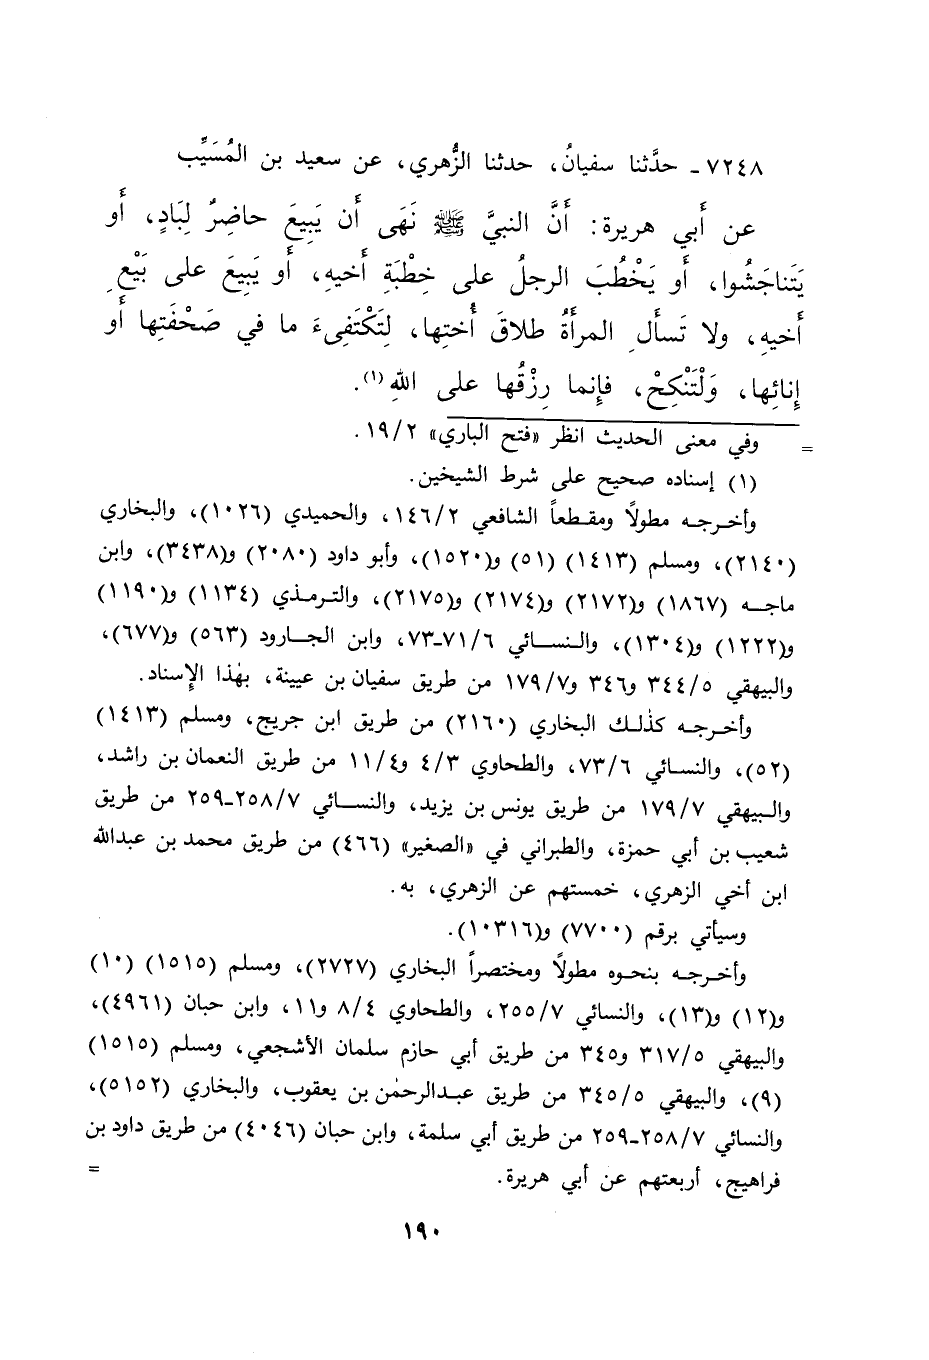 ٧٢٤٨ - حدَّثنا سفيانُ، حدثنا الزُّهري، عن سعيد بن المُسَيِّب
عن أَبي هريرة: أَنَّ النبيَّ ﷺ نَهَى أَن يَبِيعَ حاضِرٌ لِبَادٍ، أَو
يَتَناجَشُوا، أَو يَخْطُبَ الرجلُ على خِطْبَةِ أَخيهِ، أَو يَبِيعَ على بَيْعِ
أَخيهِ، ولا تَسأَلِ المرأَةُ طلاقَ أُختِها، لِتَكْتَفِىءَ ما في صَحْفَتِها أَو
إِنائِها، وَلْتَنْكِحْ، فإِنما رِزْقُها على اللهِ(١).
وفي معنى الحديث انظر «فتح الباري» ١٩/٢. =
(١) إسناده صحيح على شرط الشيخين.
وأخرجه مطولاً ومقطعاً الشافعي ١٤٦/٢، والحميدي (١٠٢٦)، والبخاري
(٢١٤٠)، ومسلم (١٤١٣) (٥١) و(١٥٢٠)، وأبو داود (٢٠٨٠) و(٣٤٣٨)، وابن
ماجه (١٨٦٧) و(٢١٧٢) و(٢١٧٤) و(٢١٧٥)، والترمذي (١١٣٤) و(١١٩٠)
و(١٢٢٢) و(١٣٠٤)، والنسائي ٧١/٦-٧٣، وابن الجارود (٥٦٣) و(٦٧٧)،
والبيهقي ٣٤٤/٥ و٣٤٦ و١٧٩/٧ من طريق سفيان بن عيينة، بهٰذا الإِسناد.
وأخرجه كذٰلك البخاري (٢١٦٠) من طريق ابن جريج، ومسلم (١٤١٣)
(٥٢)، والنسائي ٧٣/٦، والطحاوي ٤/٣ و١١/٤ من طريق النعمان بن راشد،
والبيهقي ١٧٩/٧ من طريق يونس بن يزيد، والنسائي ٢٥٨/٧-٢٥٩ من طريق
شعيب بن أبي حمزة، والطبراني في «الصغير» (٤٦٦) من طريق محمد بن عبدالله
ابن أخي الزهري، خمستهم عن الزهري، به.
وسيأتي برقم (٧٧٠٠) و(١٠٣١٦).
وأخرجه بنحوه مطولاً ومختصراً البخاري (٢٧٢٧)، ومسلم (١٥١٥) (١٠)
و(١٢) و(١٣)، والنسائي ٢٥٥/٧، والطحاوي ٨/٤ و١١، وابن حبان (٤٩٦١)،
والبيهقي ٣١٧/٥ و٣٤٥ من طريق أبي حازم سلمان الأشجعي، ومسلم (١٥١٥)
(٩)، والبيهقي ٣٤٥/٥ من طريق عبدالرحمٰن بن يعقوب، والبخاري (٥١٥٢)،
والنسائي ٢٥٨/٧-٢٥٩ من طريق أبي سلمة، وابن حبان (٤٠٤٦) من طريق داود بن
فراهيج، أربعتهم عن أبي هريرة. =
١٩٠